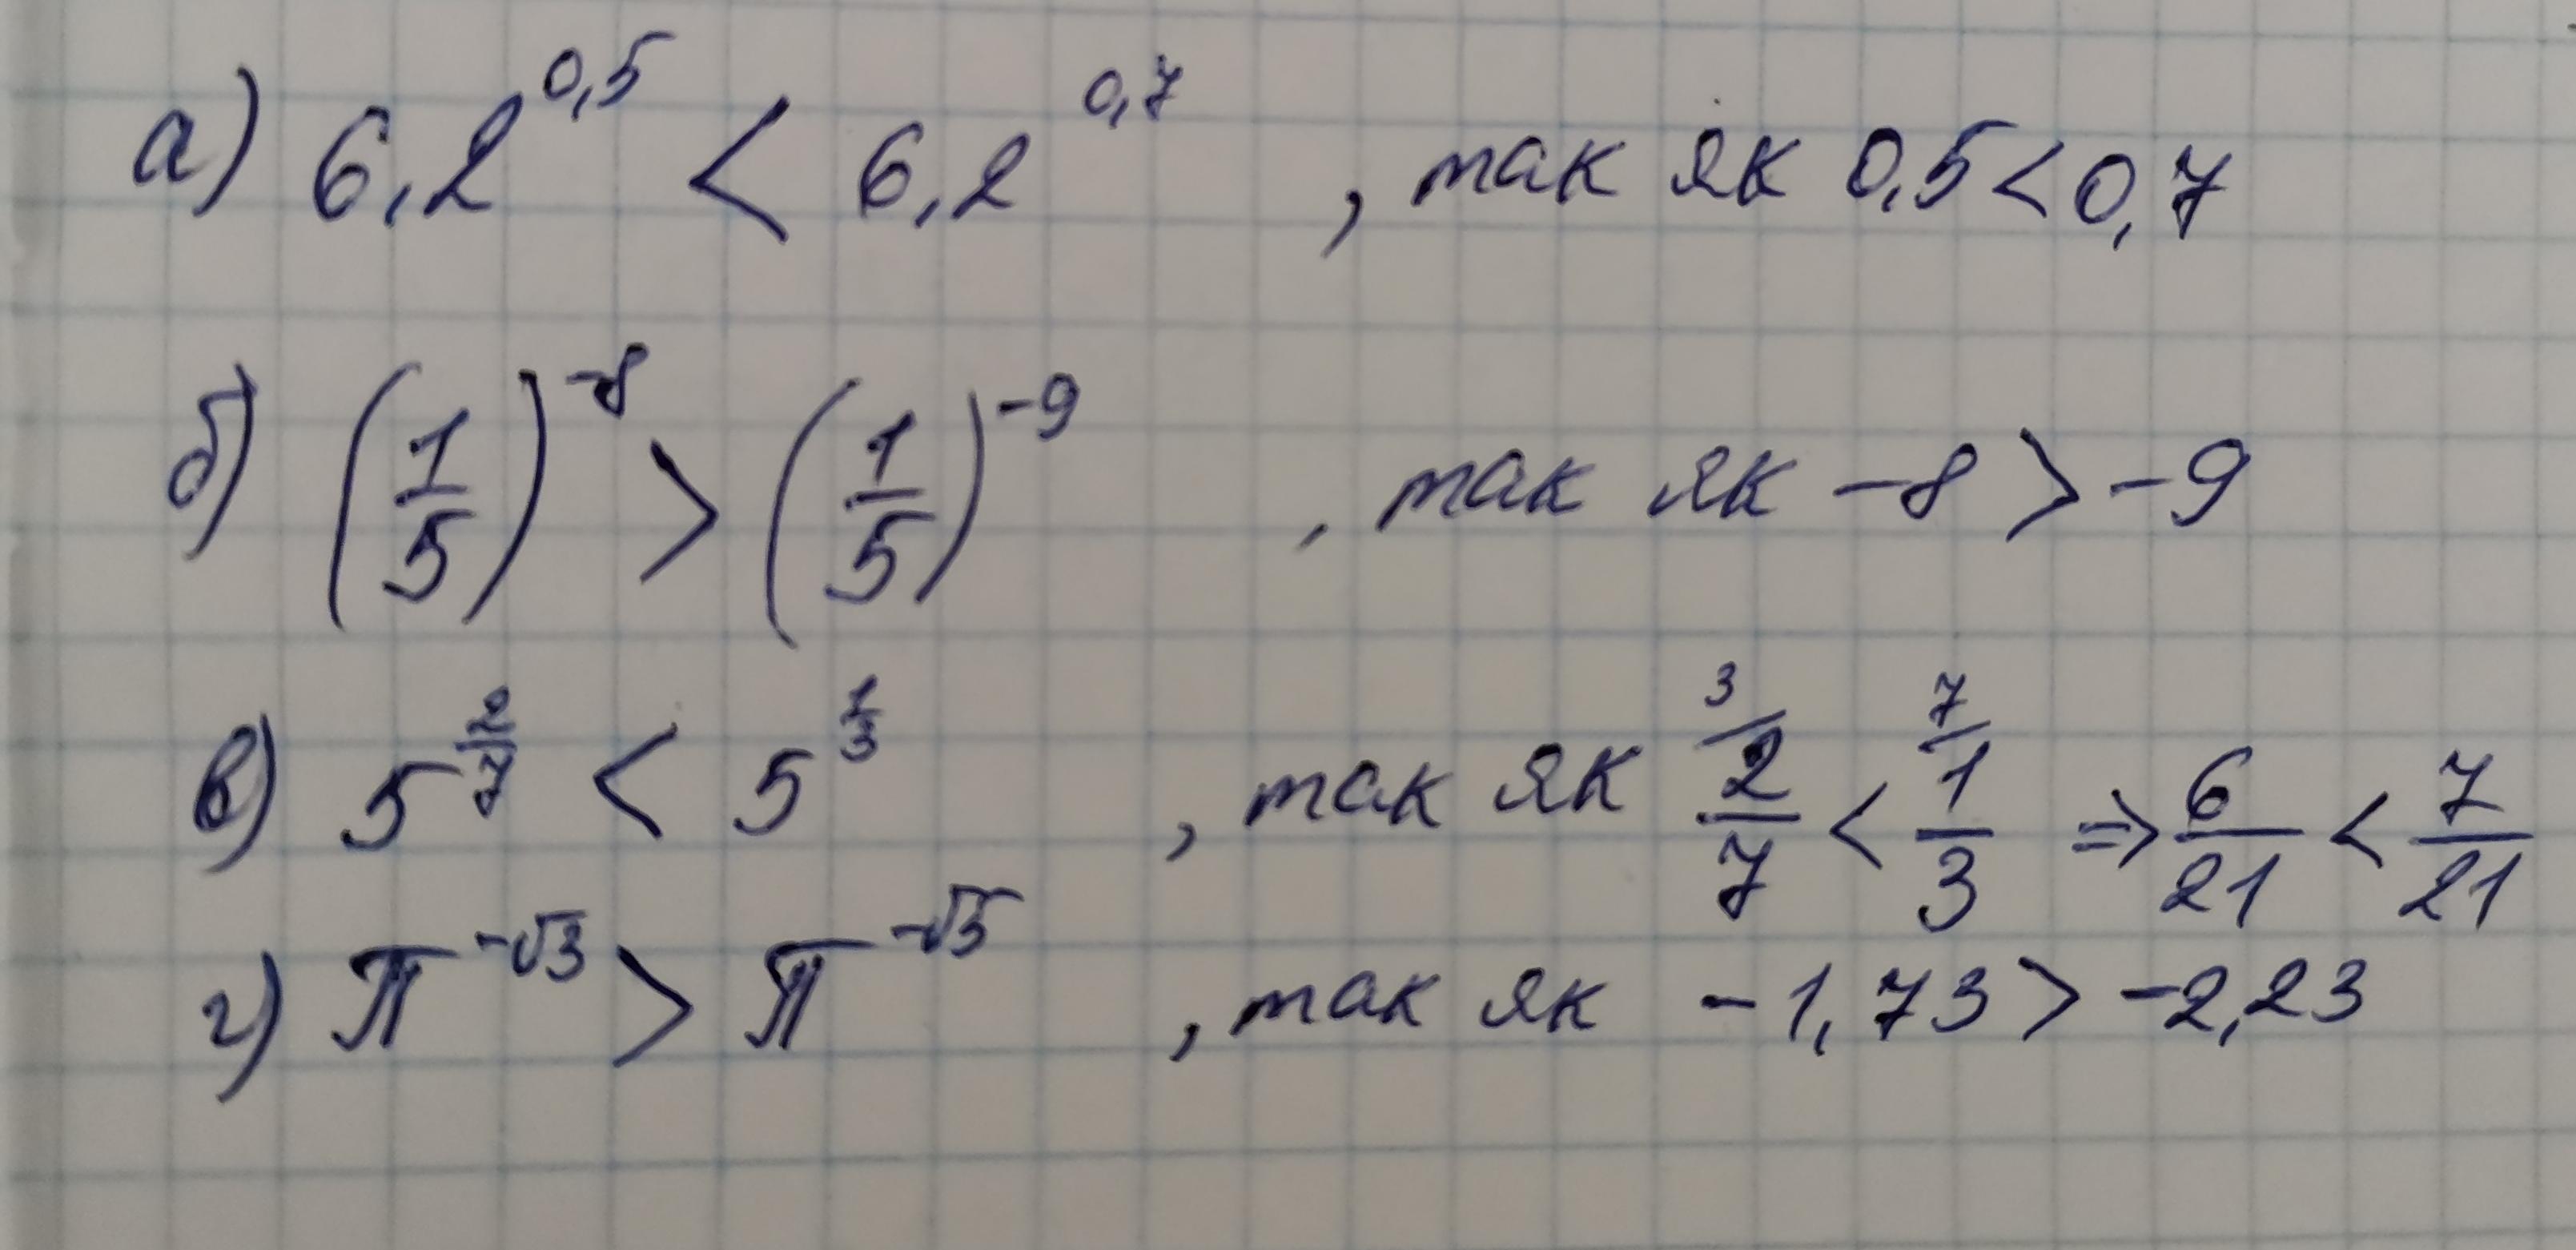 а) 6,2^0,5 < 6,2^0,7 , так як 0,5 < 0,7
б) (1/5)^-8 > (1/5)^-9 , так як -8 > -9
в) 5^2/7 < 5^1/3 , так як 3/ 2/7 < 7/ 1/3 ⇒ 6/21 < 7/21
г) π^-√3 > π^-√5 , так як -1,73 > -2,23